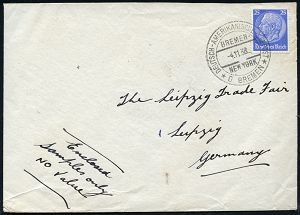 25
Deutsches Reich
DEUTSCH-AMERIKANISCHE
BREMEN-
NEW YORK
D. BREMEN
The Leipzig Trade Fair
Leipzig
Germany
Enclosed
Samples only
No Value